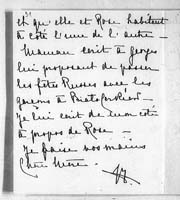 et qu'elle et Rose habitent
à côté l'une de l'autre –
Maman écrit à georges
lui proposant de passer
les fêtes Russes avec les
garçons à
Je lui écris de mon côté
à propos de Rose –
Je baise vos mains
Chère Mère.